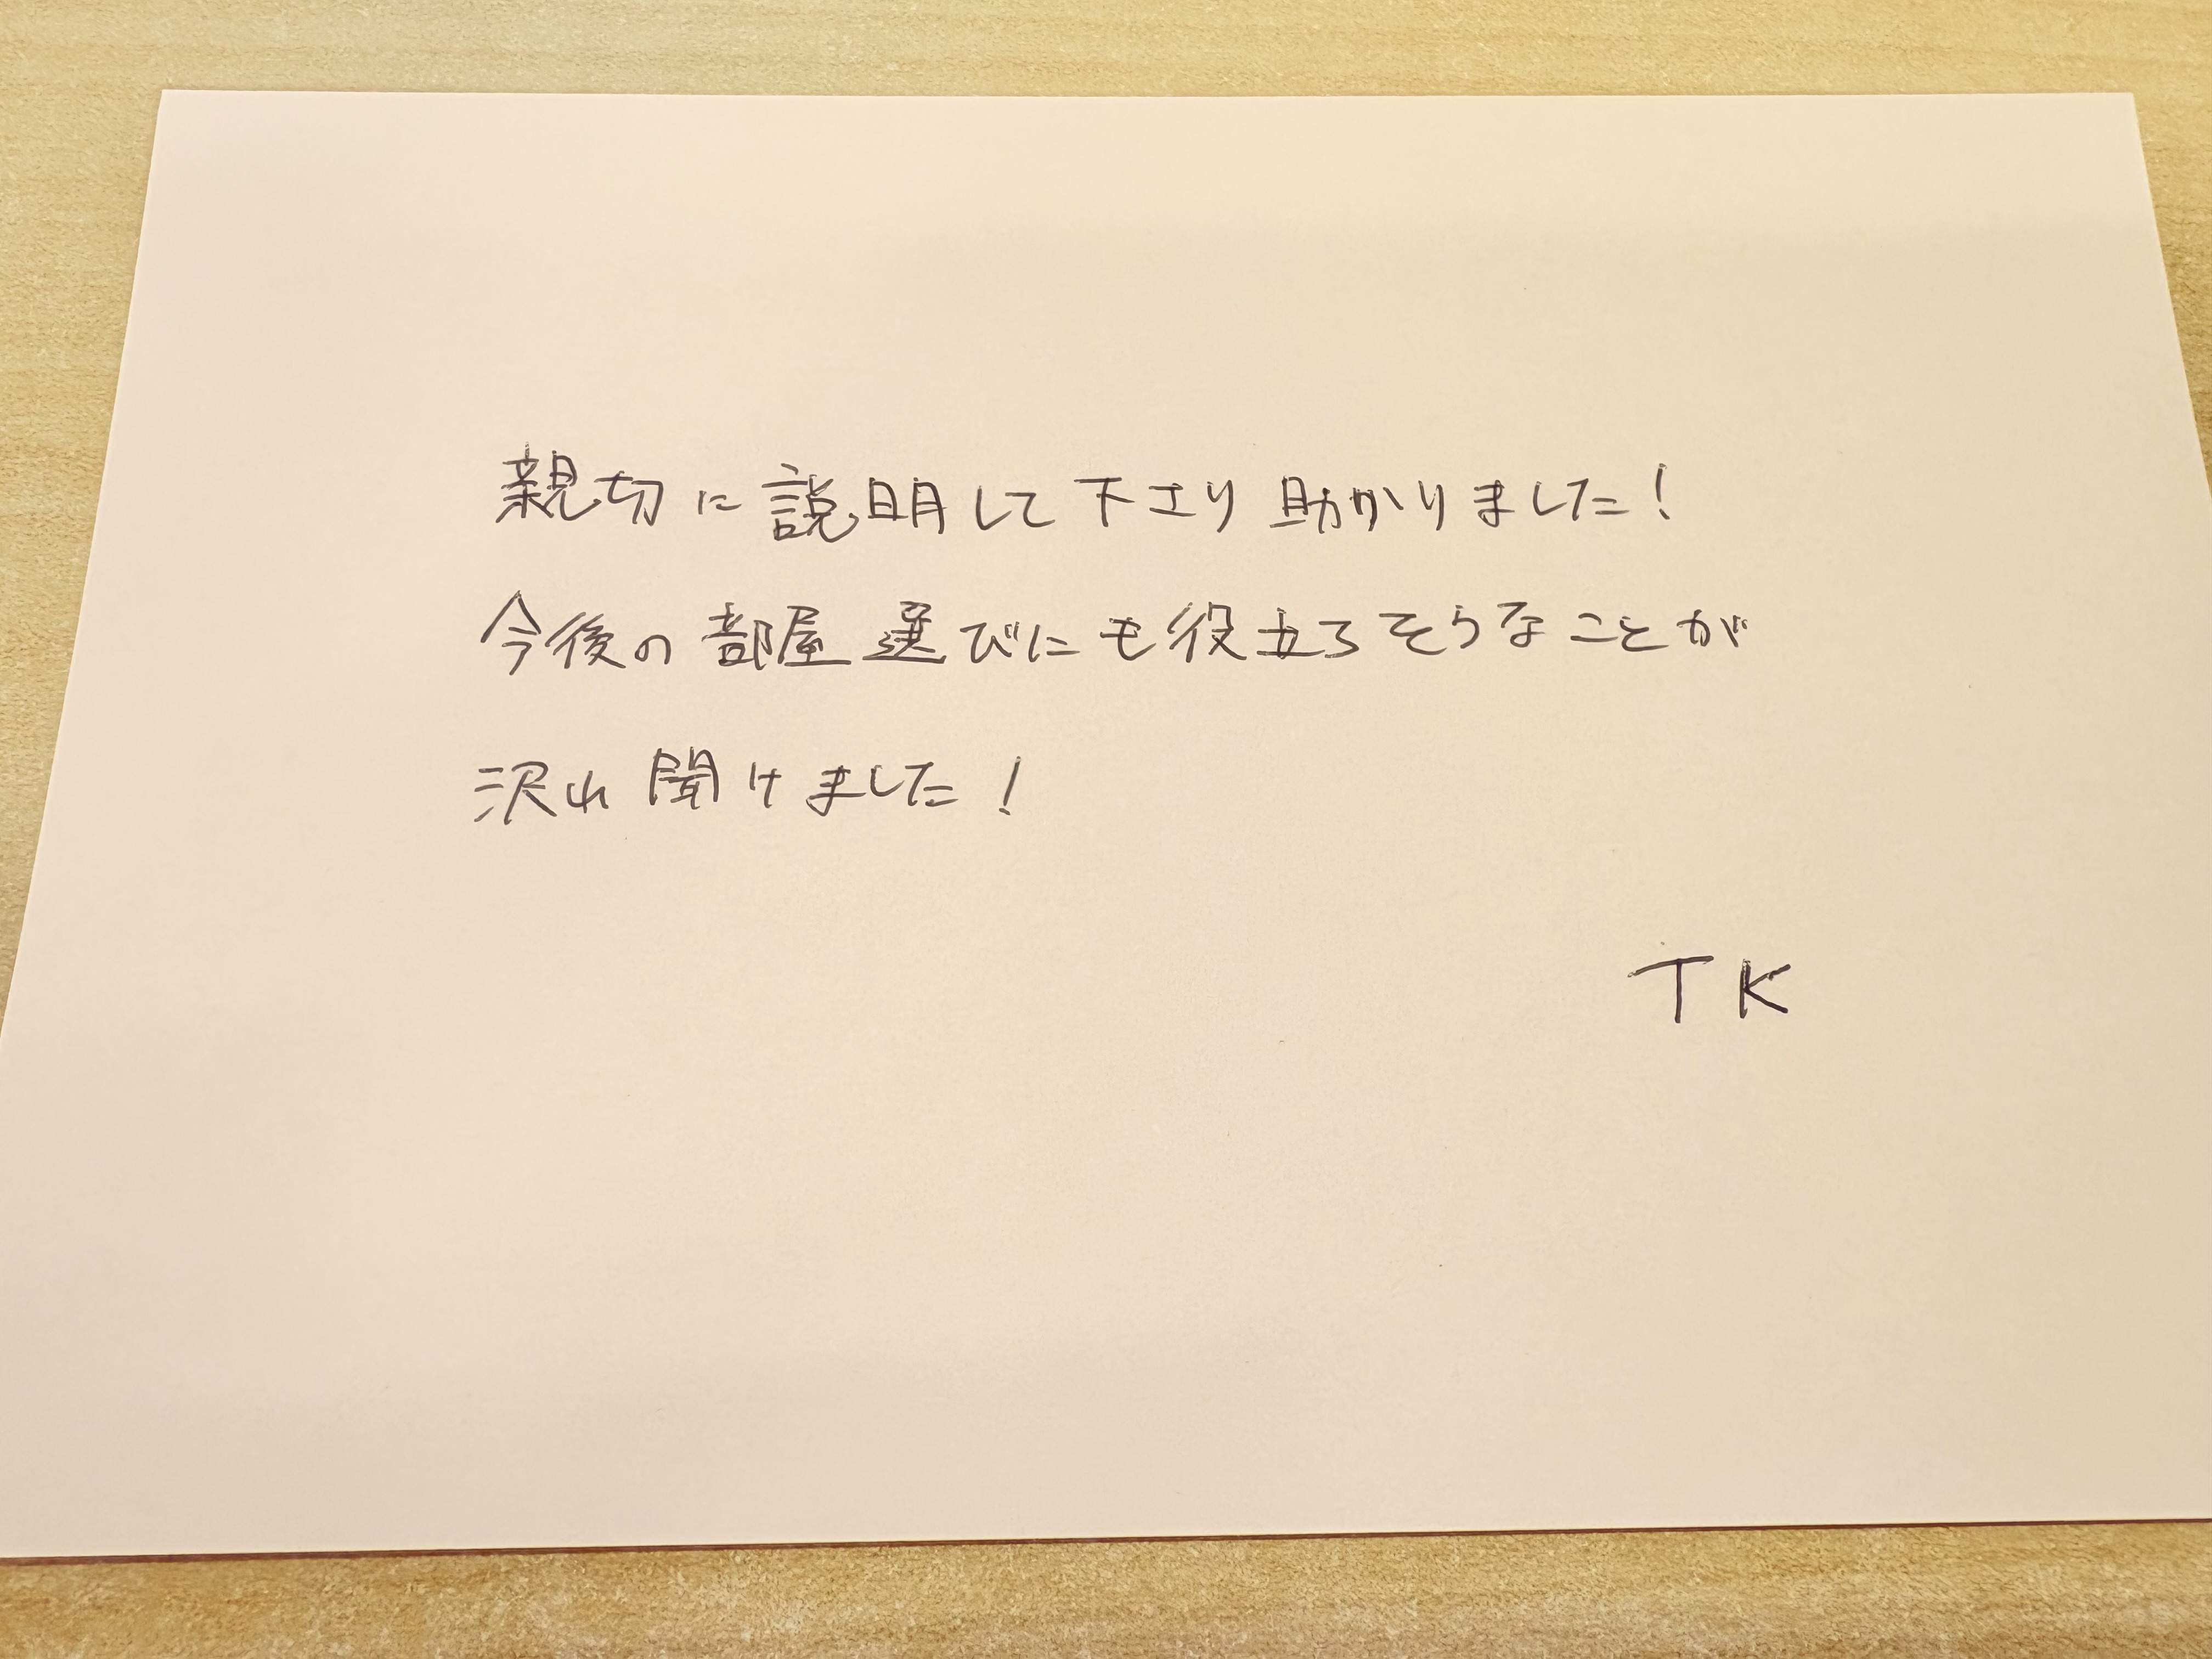 親切に説明して下さり助かりました!
今後の部屋選びにも役立ろそうなことが
沢山聞けました!
TK